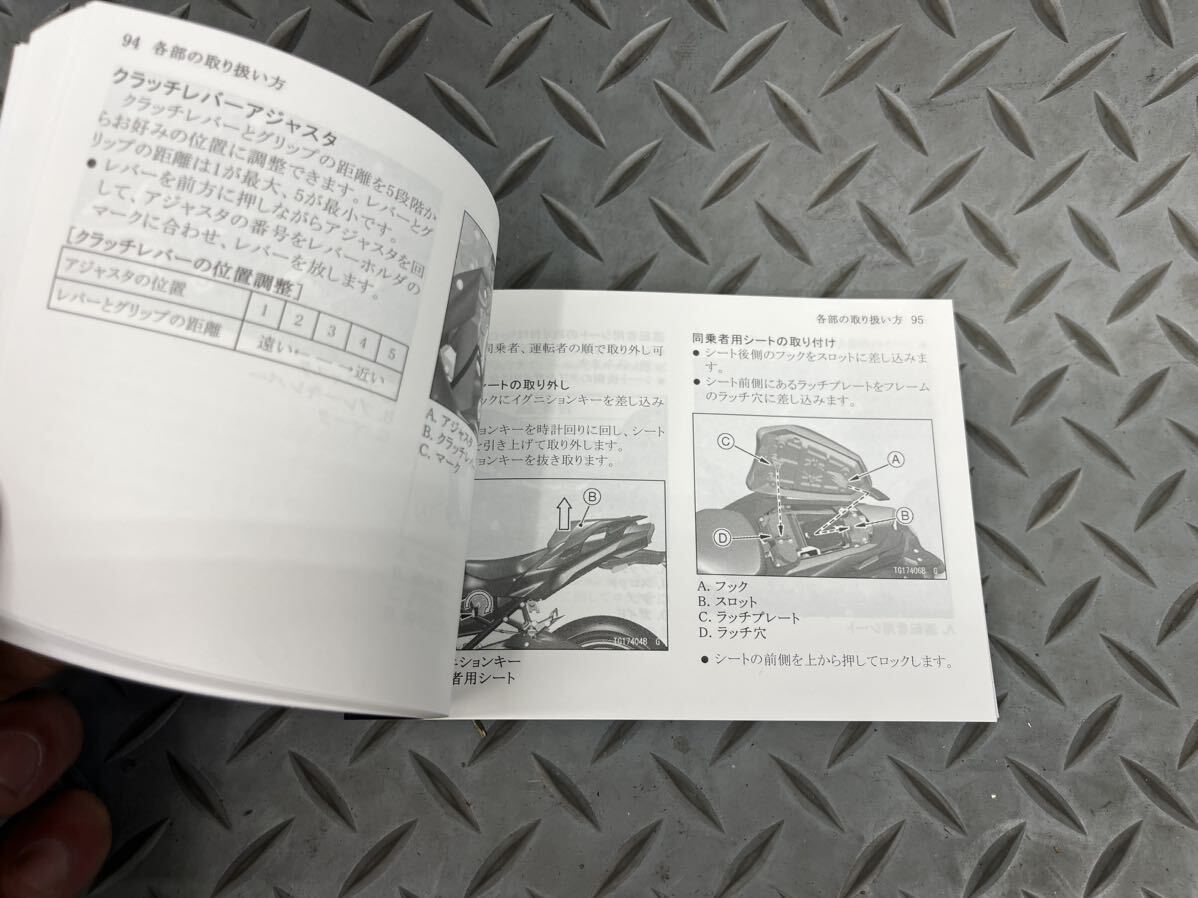 94 各部の取り扱い方
クラッチレバーアジャスタ
クラッチレバーとグリップの距離を5段階か
らお好みの位置に調整できます。レバーとグ
リップの距離は1が最大、5が最小です。
● レバーを前方に押しながらアジャスタを回
して、アジャスタの番号をレバーホルダの
マークに合わせ、レバーを放します。
[クラッチレバーの位置調整]
アジャスタの位置 1 2 3 4 5
レバーとグリップの距離 遠い← →近い
A. アジャスタ
B. クラッチレバ
C. マーク
同乗者、運転者の順で取り外し可
シートの取り外し
ックにイグニションキーを差し込み
ションキーを時計回りに回し、シート
を引き上げて取り外します。
ションキーを抜き取ります。
B
TG17404B G
ニションキー
者用シート
各部の取り扱い方 95
同乗者用シートの取り付け
● シート後側のフックをスロットに差し込みま
す。
● シート前側にあるラッチプレートをフレーム
のラッチ穴に差し込みます。
C
A
B
D
TG17406B G
A. フック
B. スロット
C. ラッチプレート
D. ラッチ穴
● シートの前側を上から押してロックします。